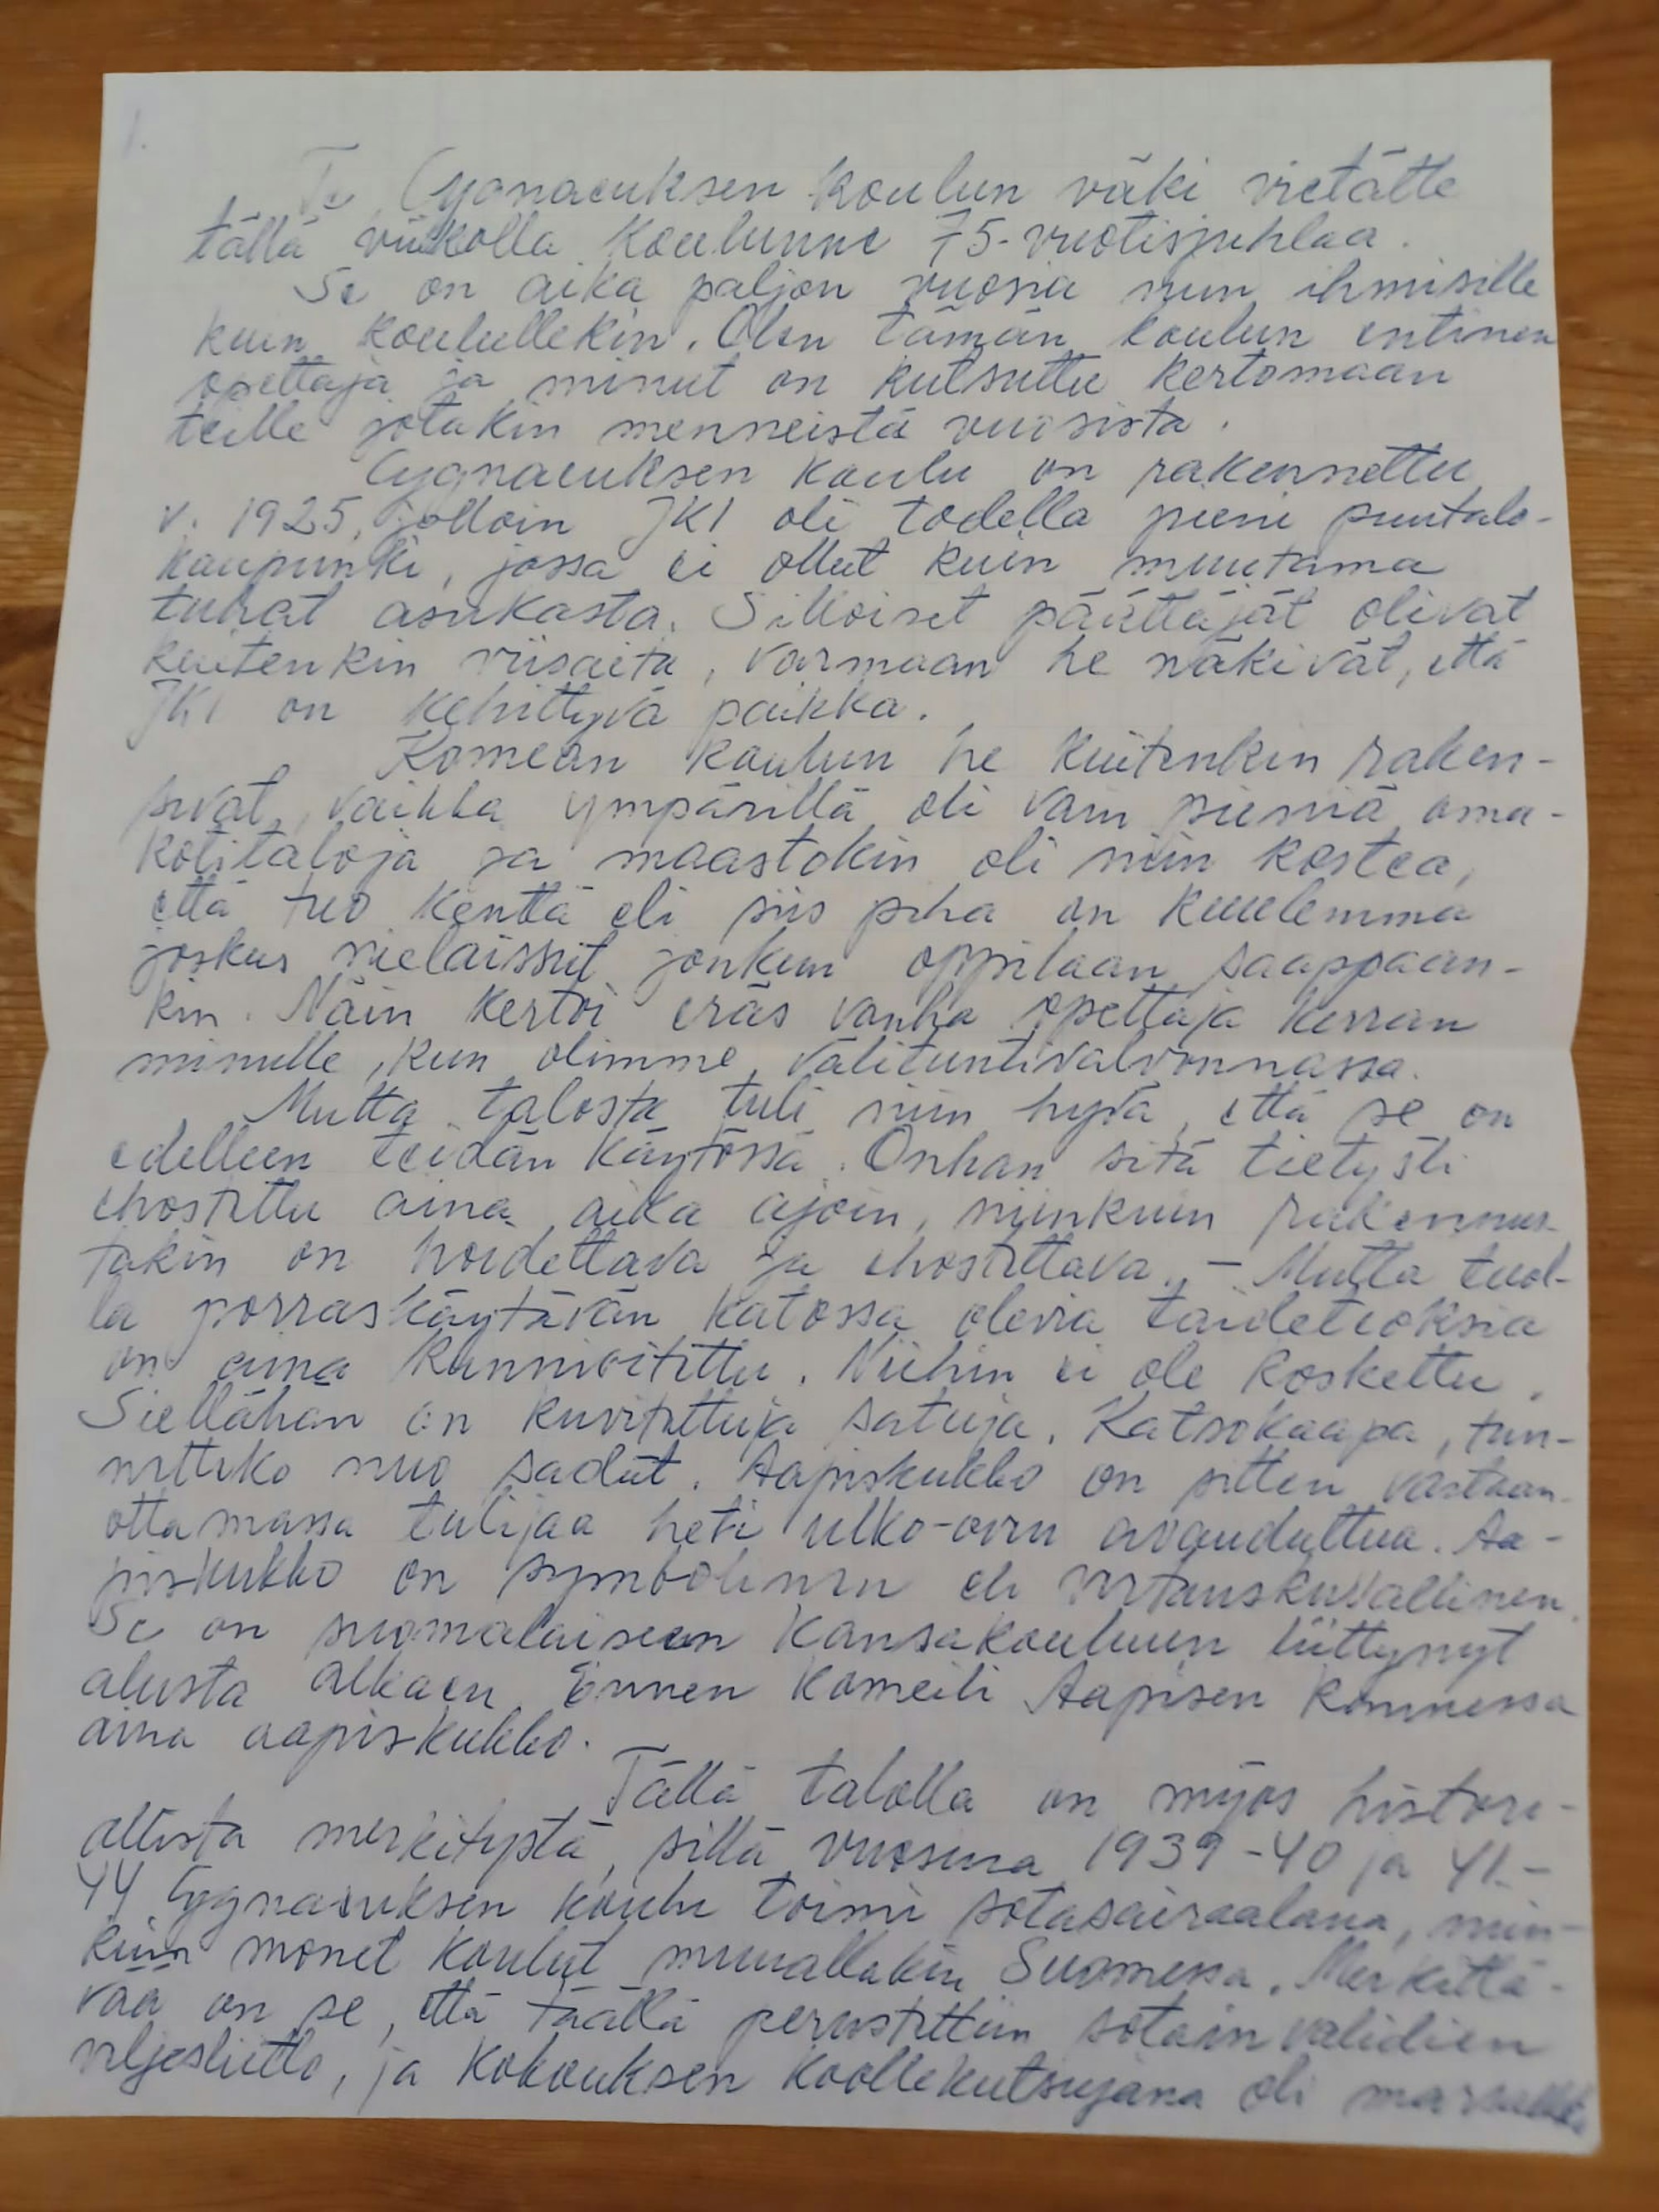 1.
Te Cygnaeuksen koulun väki vietätte
tällä viikolla koulunne 75-vuotisjuhlaa.
Se on aika paljon vuosia niin ihmisille
kuin koulullekin. Olen tämän koulun entinen
opettaja ja minut on kutsuttu kertomaan
teille jotakin menneistä vuosista.
Cygnaeuksen koulu on rakennettu
v. 1925, jolloin JKl oli todella pieni puutalo-
kaupunki, jossa ei ollut kuin muutama
tuhat asukasta. Silloiset päättäjät olivat
kuitenkin viisaita, varmaan he näkivät, että
JKl on kehittyvä paikka.
Komean koulun he kuitenkin raken-
sivat, vaikka ympärillä oli vain pieniä oma-
kotitaloja ja maastokin oli niin kostea,
että tuo kenttä eli siis piha on kuulemma
joskus nielaissut jonkun oppilaan saappaan-
kin. Näin kertoi eräs vanha opettaja kerran
minulle, kun olimme välituntivalvonnassa.
Mutta talosta tuli niin hyvä, että se on
edelleen teidän käytössä. Onhan sitä tietysti
ehostettu aina aika ajoin, niinkuin rakennus-
takin on hoidettava ja ehostettava. - Mutta tuol-
la porraskäytävän katossa olevia taideteoksia
on aina kunnioitettu. Niihin ei ole koskettu.
Siellähän on kuvitettuja satuja. Katsokaapa, tun-
netteko nuo sadut. Aapiskukko on sitten vastaan-
ottamassa tulijaa heti ulko-oven avauduttua. Aa-
piskukko on symbolinen eli vertauskuvallinen.
Se on suomalaiseen kansakouluun liittynyt
alusta alkaen. Ennen komeili Aapisen kannessa
aina aapiskukko.
Tällä talolla on myös histori-
allista merkitystä, sillä vuosina 1939-40 ja 41-
44 Cygnaeuksen koulu toimi sotasairaalana, niin-
kuin monet koulut muuallakin Suomessa. Merkittä-
vää on se, että täällä perustettiin sotainvalidien
veljesliitto, ja kokouksen koollekutsujana oli